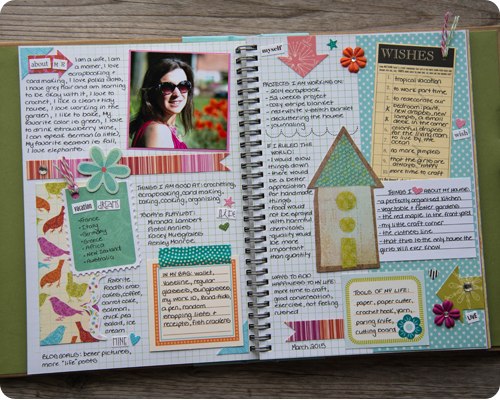 about ME
I am a wife, I am
a mother, I love
scrapbooking +
card making, I love polka dots,
I have grey hair and am learning
to be okay with it, I love to
crochet, I like a clean tidy
house, I love working in the
garden, I like to bake, my
favorite color is green, I love
to drink strawberry wine,
My favorite season is fall,
I love elephants.
vacation DREAMS
- France
- Italy
- Germany
- Greece
- Africa
- New Zealand
- Australia
THINGS I AM GOOD AT: crocheting,
scrapbooking, card making,
baking, cooking, organizing
TODAY'S PLAYLIST:
Miranda Lambert
Pistol Annies
Kacey Musgraves
Ashley Monroe
IN MY BAG: wallet,
Vaseline, regular
glasses, sunglasses,
my work ID, Band-Aids,
a pen, random
shopping lists +
receipts, fish crackers
Favorite
foods: crab
cakes, coffee,
salmon,
chick pea
salad, ice
cream
MINE
BLOG GOALS: better pictures,
more "life" posts
myself
PROJECTS I AM WORKING ON:
- 2014 scrapbook
- 52 weeks project
- cozy stripe blanket
- red/white v-stitch blanket
- decluttering the house
- journaling
IF I RULED THE
WORLD:
- I would slow
things down
- there would
be a better
appreciation
for handmade
things
- food would
not be sprayed
with harmful
chemicals
- quality would
be more
important
than quantity
WAYS TO ADD
HAPPINESS TO MY LIFE:
more time to craft,
good conversation,
exercise, not feeling
rushed
March 2015
WISHES
tropical vacation
to work part time
to redecorate our
bedroom
for the living
room
more pimples
that the girls are
always happy
more time to craft
wish
THINGS I ABOUT MY HOUSE:
- a perfectly organized kitchen
- vegetable + flower gardens
- the red maple in the front yard
- my little craft corner
- the clothes line
- that this is the only house the
girls will ever know
TOOLS OF MY LIFE:
paper, paper cutter,
crochet hook, yarn,
paring knife,
cutting board
LOVE